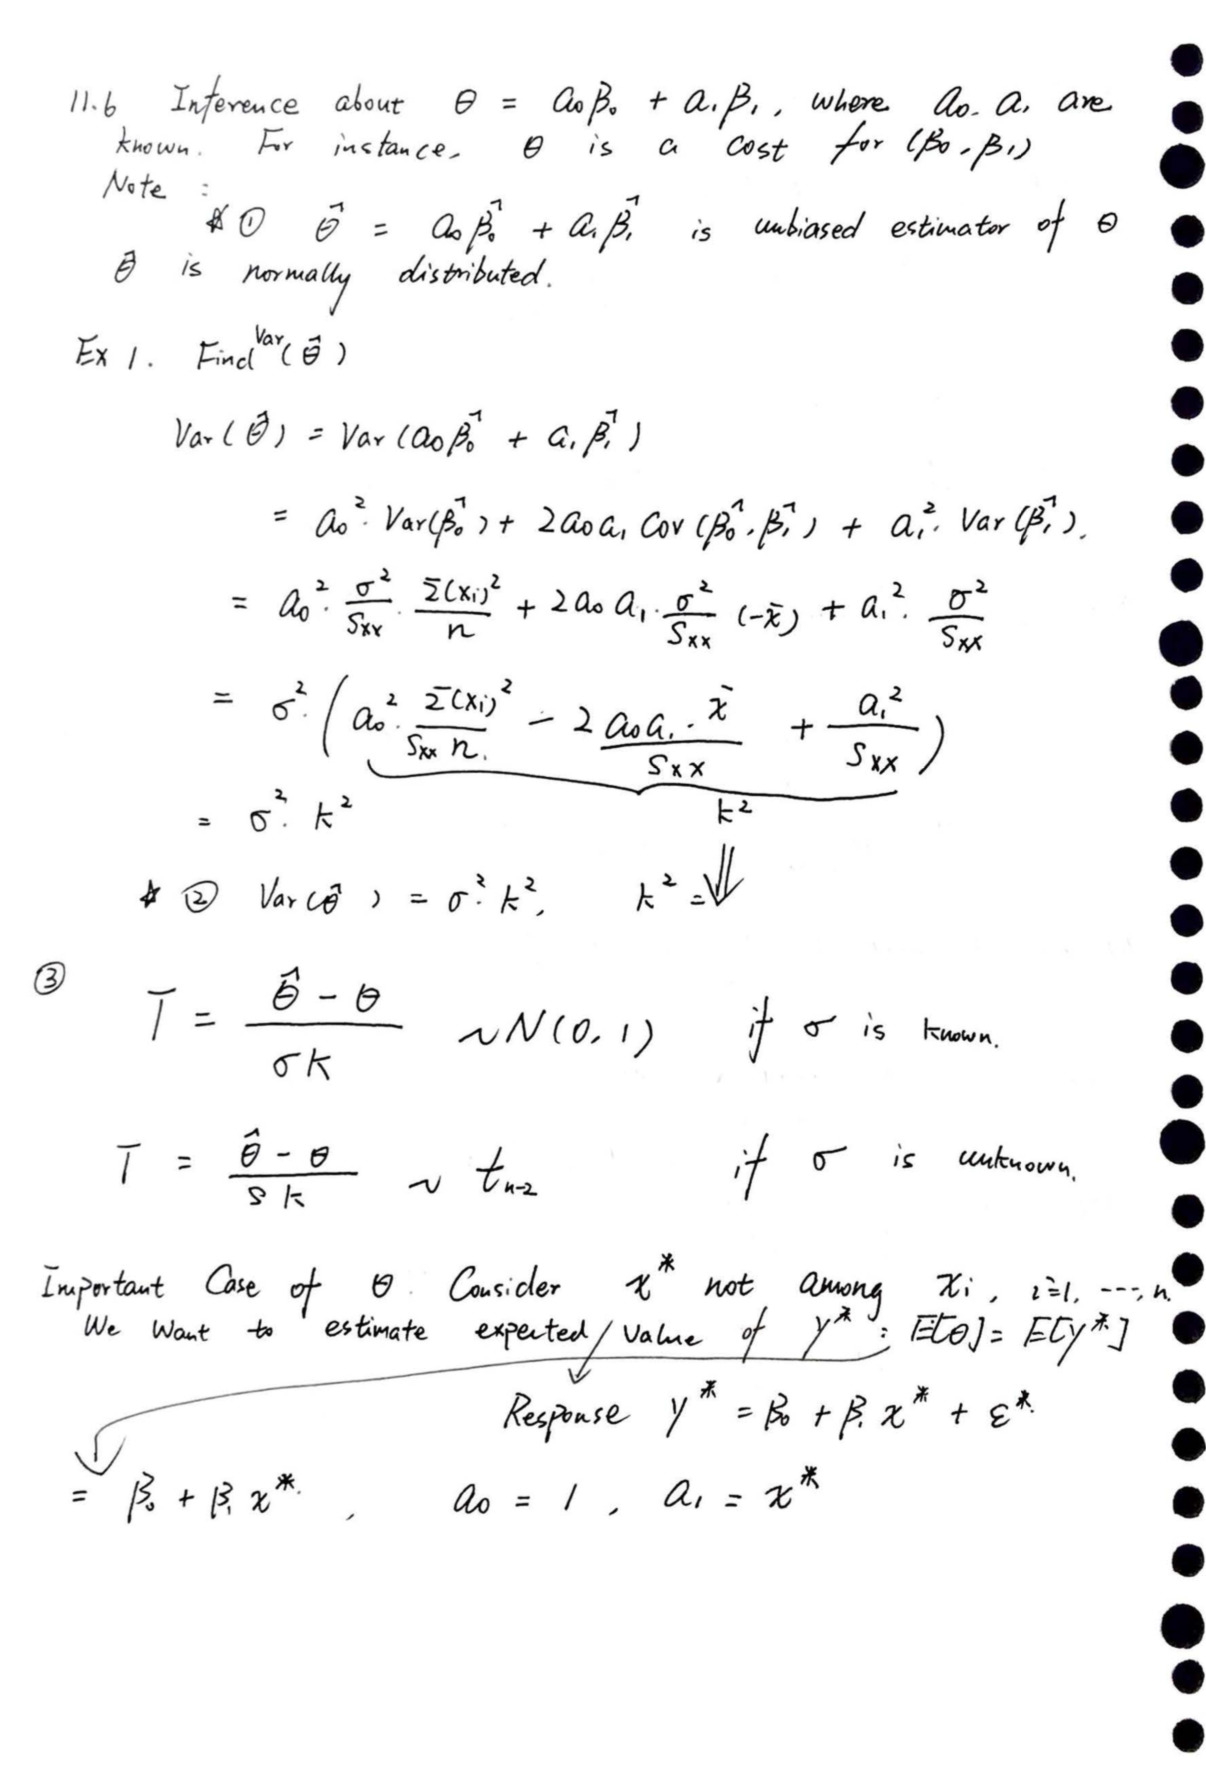 11.6 Inference about θ = a₀β₀ + a₁β₁, where a₀, a₁ are
known. For instance, θ is a cost for (β₀, β₁)
Note :
☆ ① θ̂ = a₀β̂₀ + a₁β̂₁ is unbiased estimator of θ
θ̂ is normally distributed.
Ex 1. Find Var(θ̂)
Var(θ̂) = Var(a₀β̂₀ + a₁β̂₁)
= a₀²·Var(β̂₀) + 2a₀a₁ Cov(β̂₀, β̂₁) + a₁²·Var(β̂₁).
= a₀²·σ²/Sxx · Σ(xᵢ)²/n + 2a₀a₁·σ²/Sxx (-x̄) + a₁²·σ²/Sxx
= σ²·(a₀²·Σ(xᵢ)²/(Sxx n.) - 2 a₀a₁·x̄/Sxx + a₁²/Sxx)
= σ²·k² k²
☆ ② Var(θ̂) = σ²·k², k² = ⇓
③ T = (θ̂ - θ)/(σk) ~ N(0, 1) if σ is known.
T = (θ̂ - θ)/(s k) ~ tₙ₋₂ if σ is unknown.
Important Case of θ. Consider x* not among xᵢ, i=1, ---, n.
We want to estimate expected / value of y* : E[θ] = E[y*]
Response y* = β₀ + β₁x* + ε*.
= β₀ + β₁x*. , a₀ = 1 , a₁ = x*